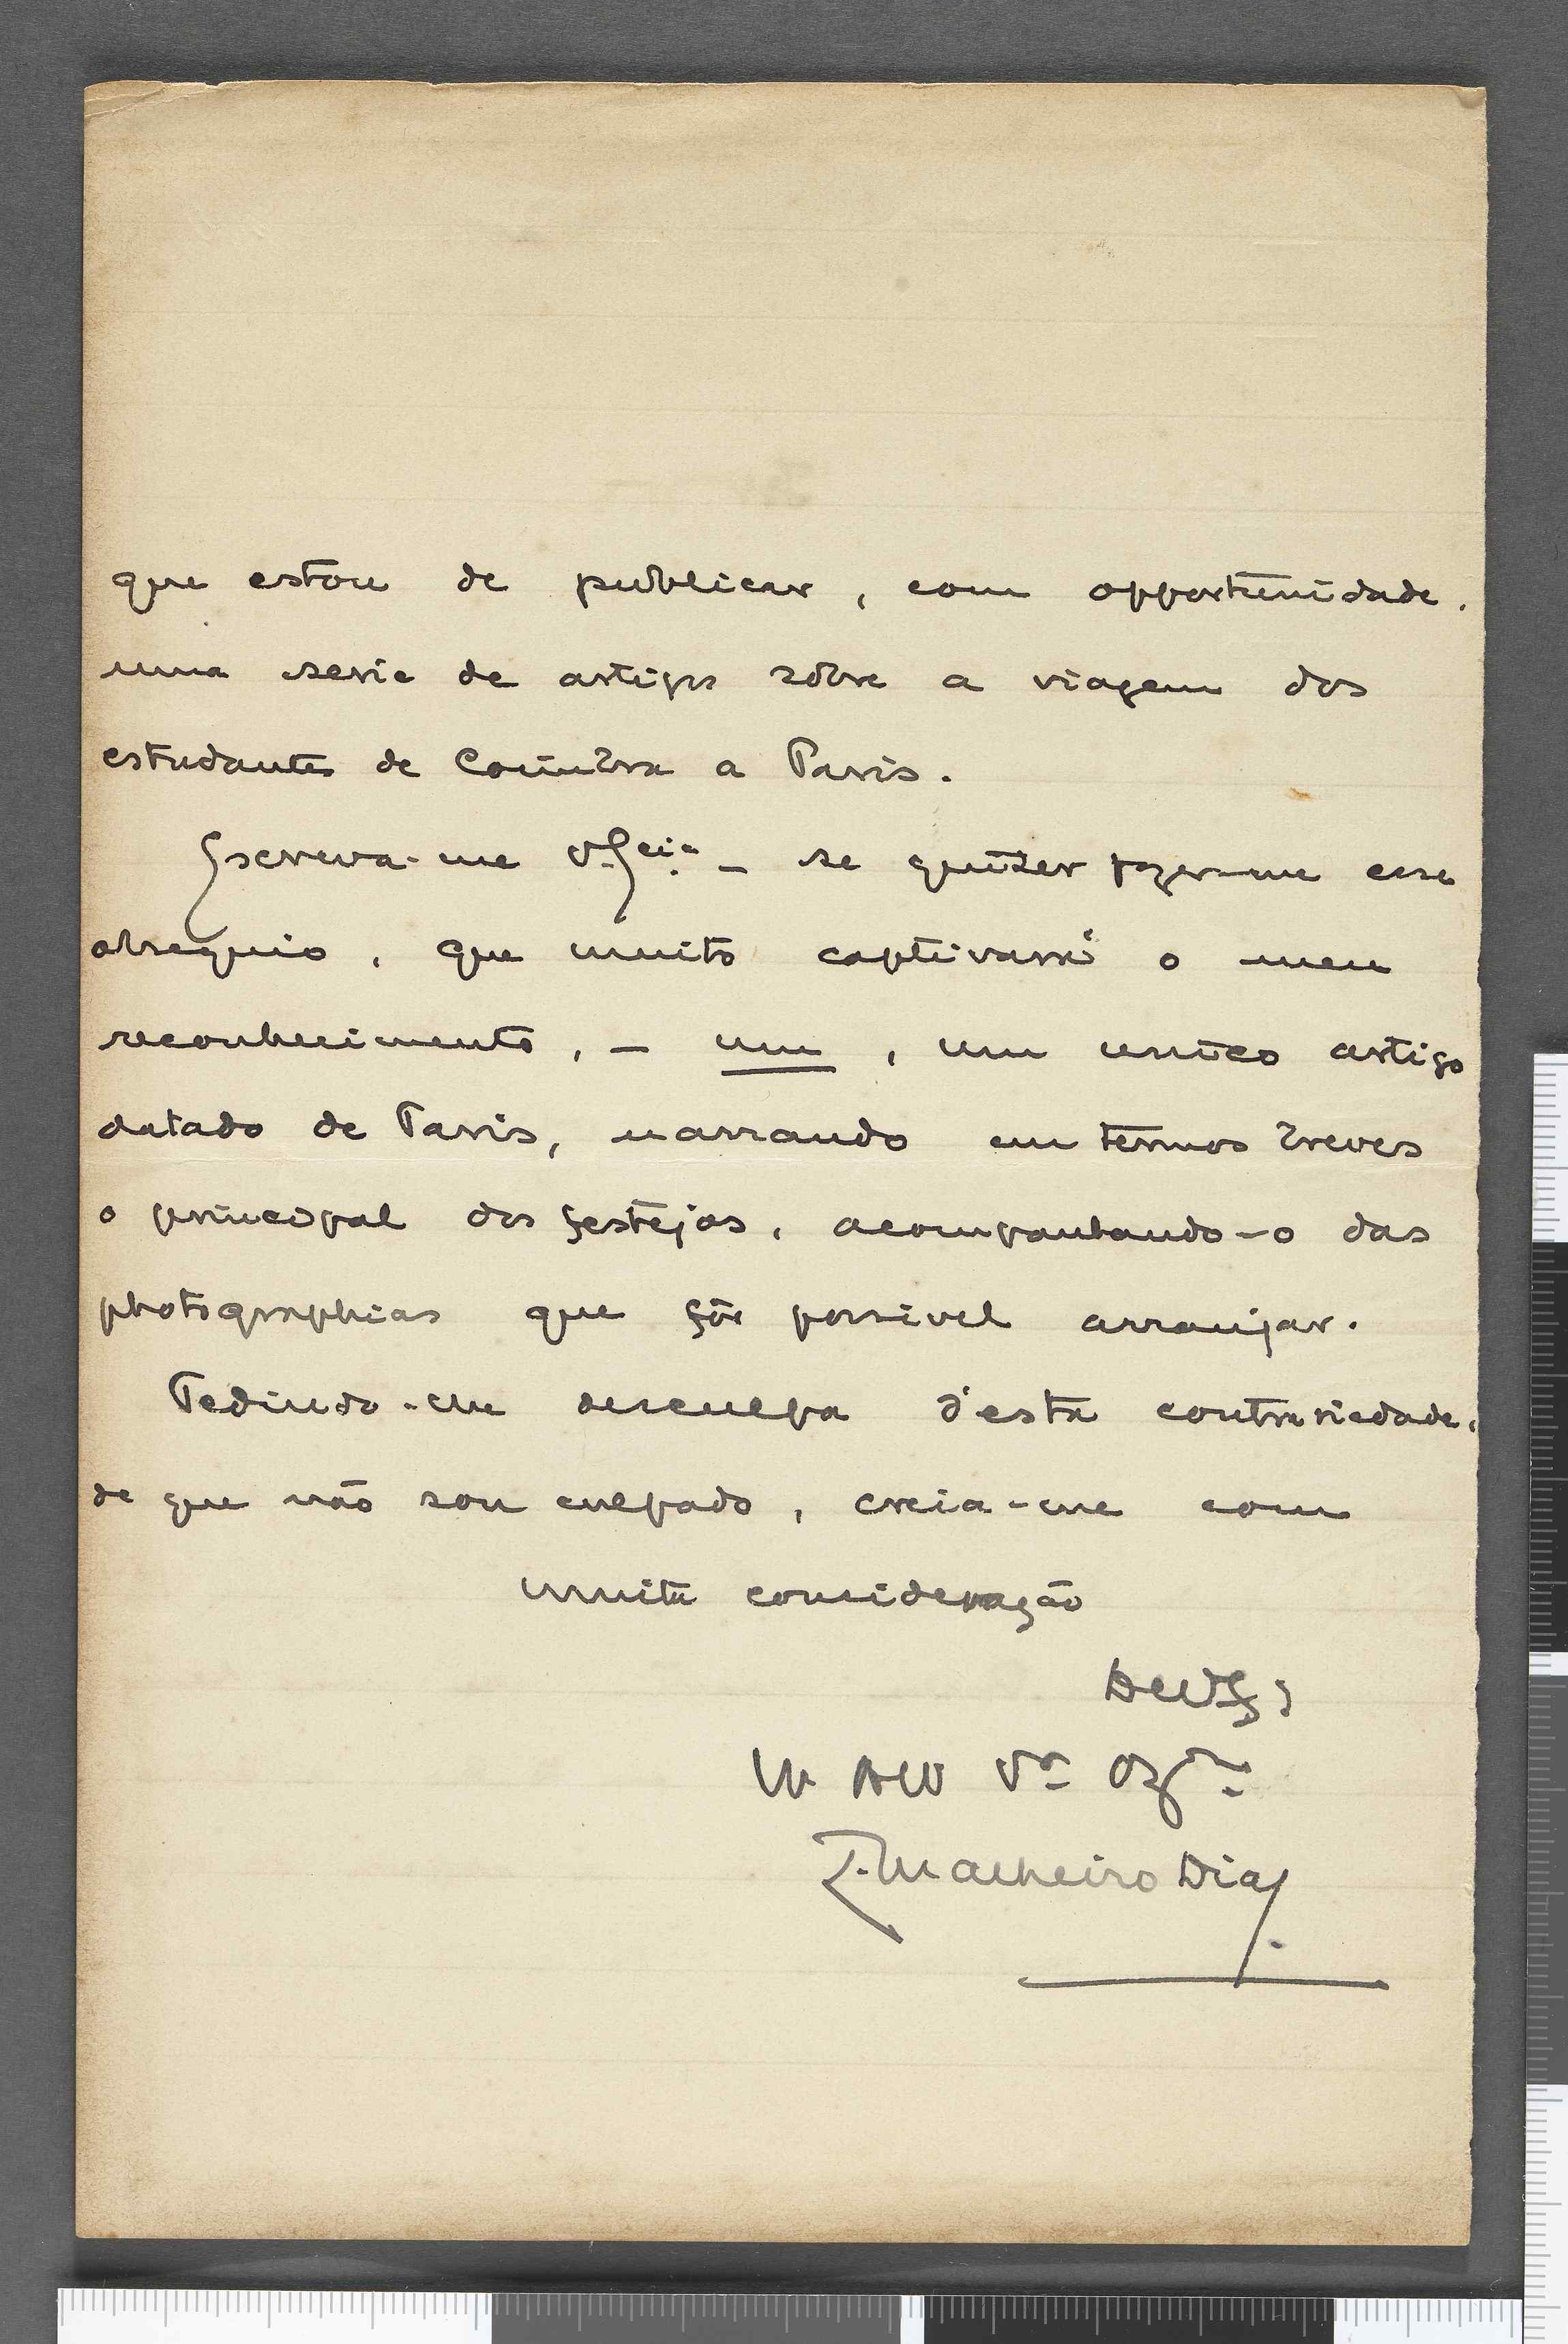 que estou de publicar, com opportunidade,
uma serie de artigos sôbre a viagem dos
estudantes de Coimbra a Paris.
Escreva-me V. Ex.cia – se quizer fazer-me esse
obsequio, que muito captivará o meu
reconhecimento, – um, um unico artigo
datado de Paris, narrando em termos breves
o principal dos festejos, acompanhando-o das
photographias que fôr possivel arranjar.
Pedindo-me desculpa d'esta contrariedade,
de que não sou culpado, creia-me com
muita consideração
De V. Ex.
M Att V.or Obg.do
C. Malheiro Dias.